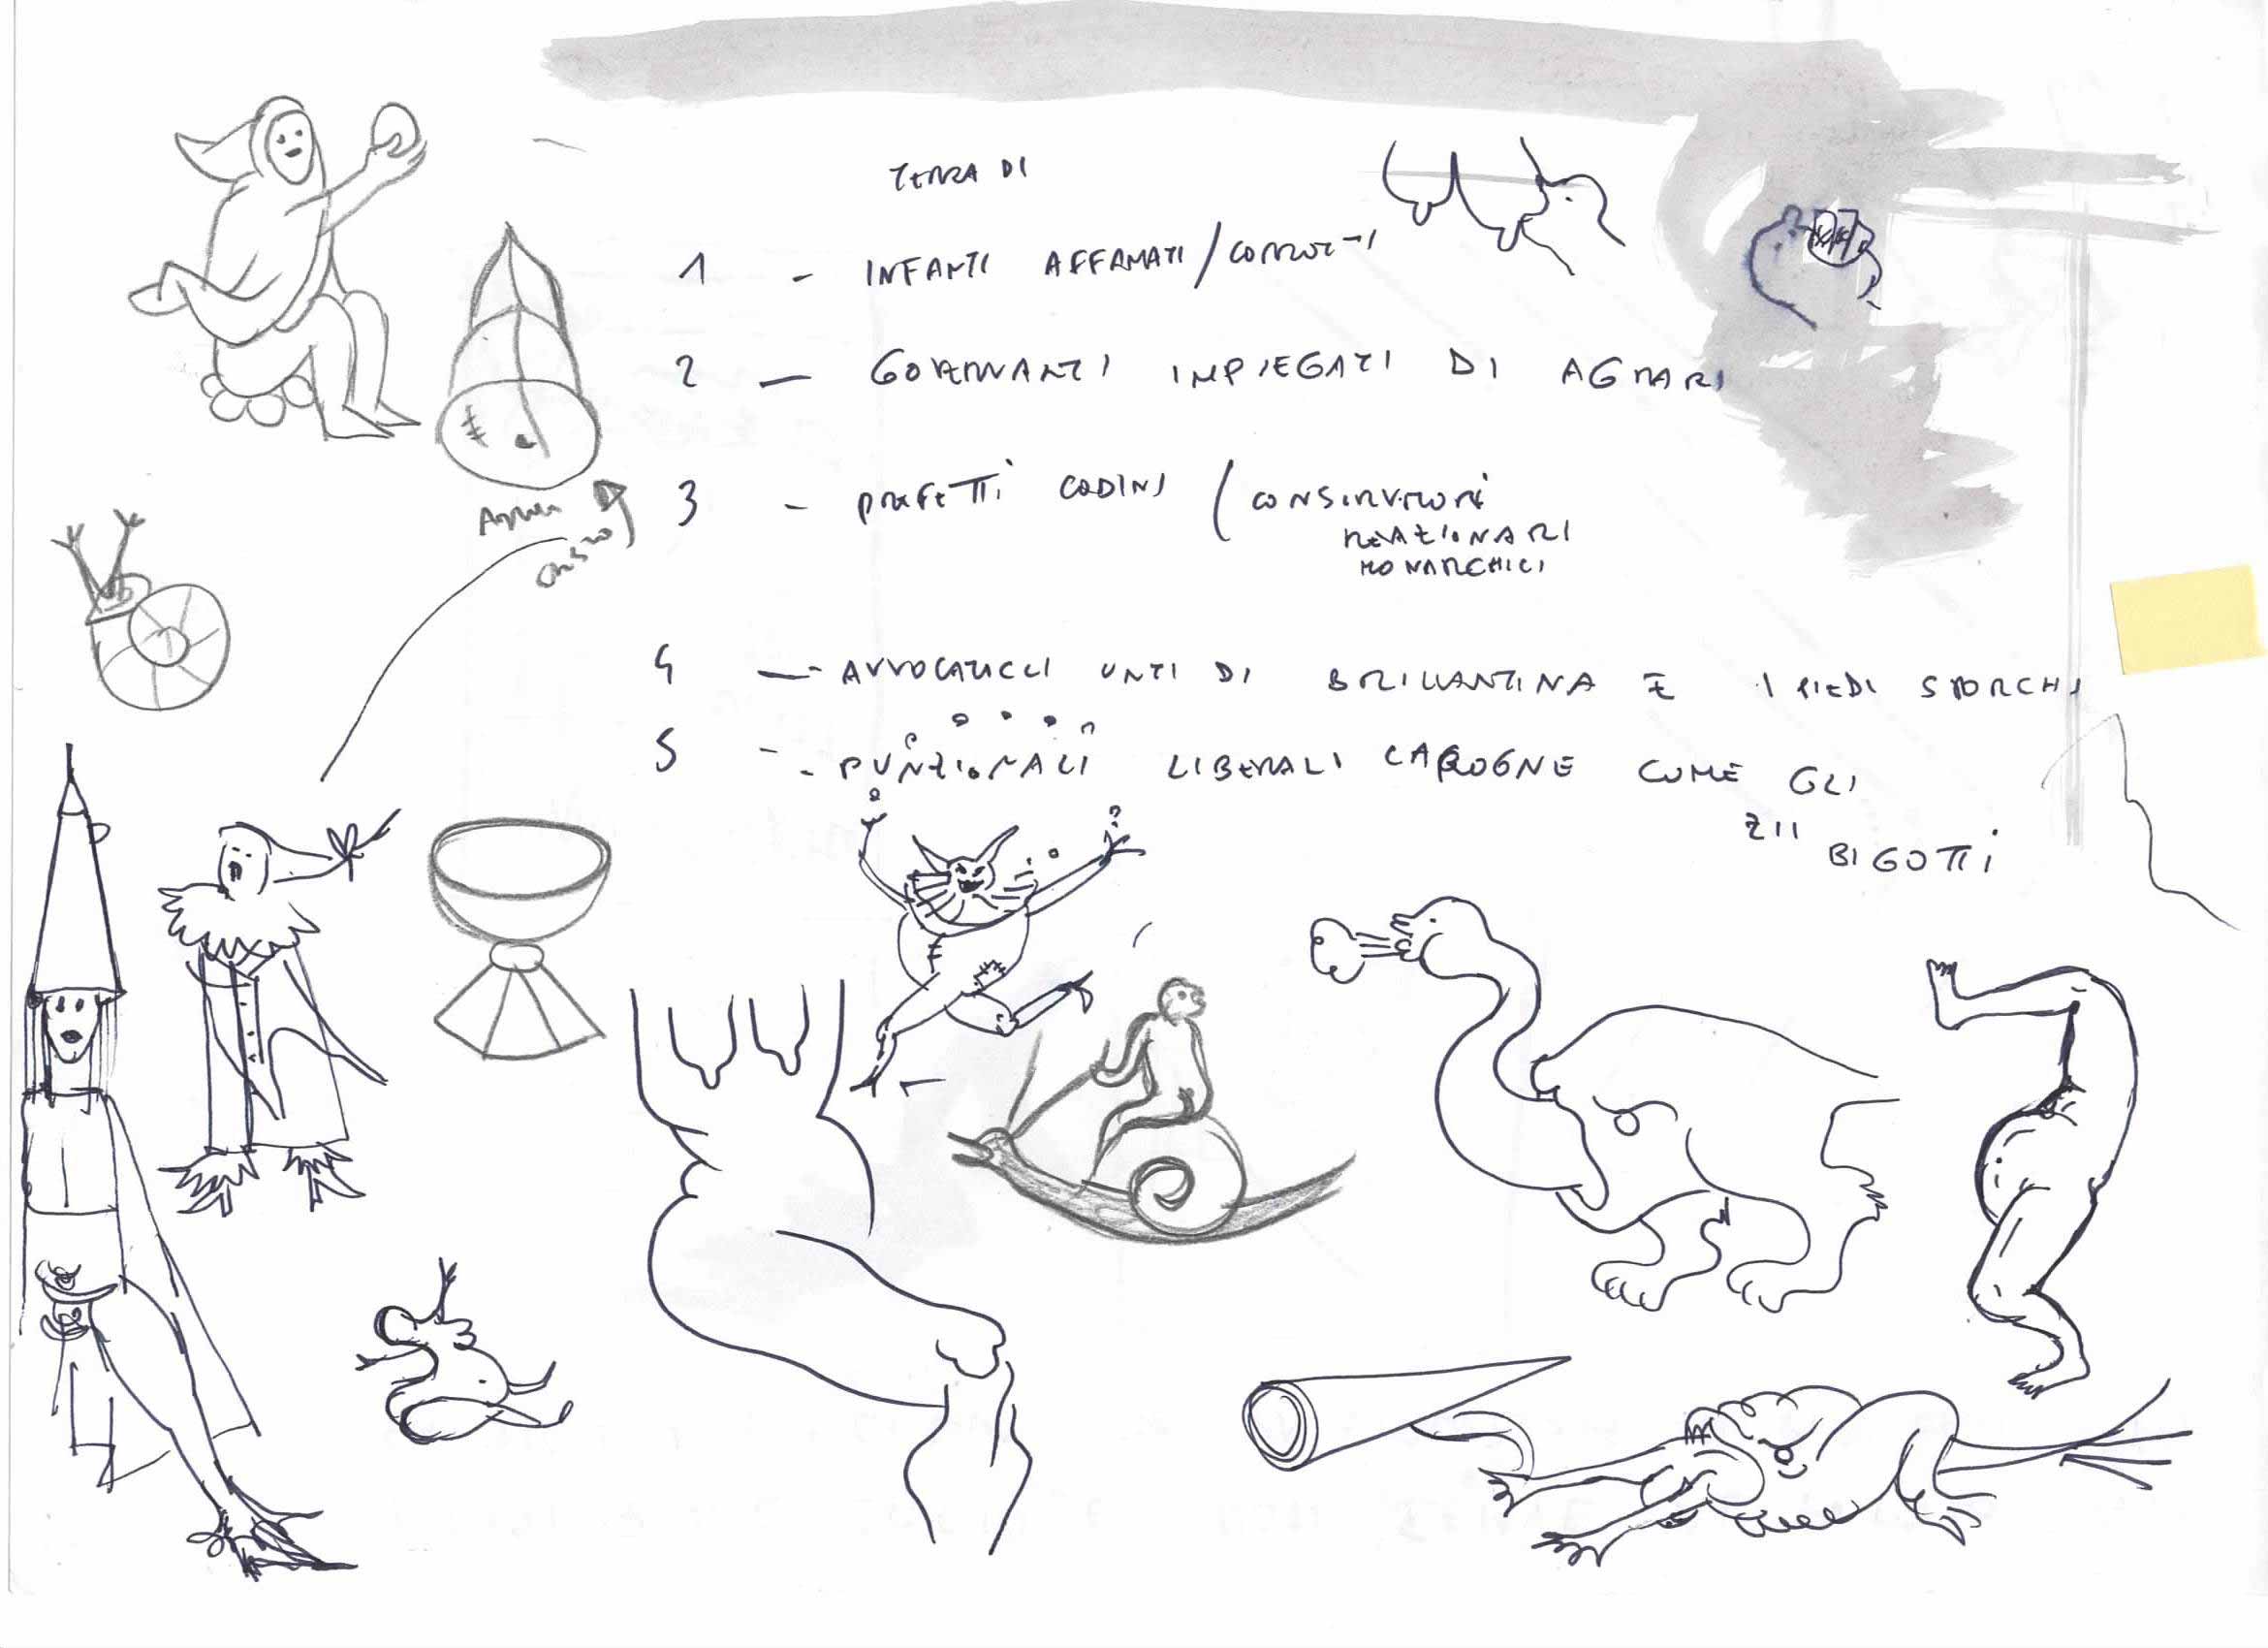 TERRA DI
1 - INFANTI AFFAMATI / CORROTTI
2 - GOVERNANTI IMPIEGATI DI AGRARI
3 - PREFETTI CODINI ( CONSERVATORI
REAZIONARI
MONARCHICI
4 - AVVOCATICCI UNTI DI BRILLANTINA E I PIEDI SPORCHI
5 - FUNZIONALI LIBERALI CAROGNE COME GLI
ZII
BIGOTTI